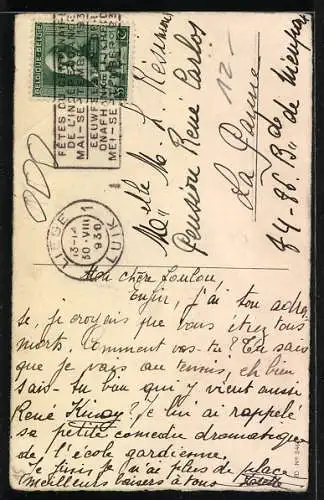 BELGIQUE-BELGIE
FÊTES DU
DE L'INDÉ
MAI-SE 1930
EEUWFE
ONAFHANK
MEI-SE 1930
LIEGE 1
30 VIII
1930
LUIK
12-
Melle M. L.
Pension René Carlos
La Panne
84-86. Bd de Nieuport
Mon chère Loulou,
Enfin, j'ai ton adres
se, je croyais que vous étiez tous
morts. Comment vas-tu? Tu sais
que je vais au tennis, eh bien
sais-tu bien qui y vient aussi
René Kinoy? Je lui ai rappelé
sa petite comédie dramatique
de l'école gardienne.
Je finis je n'ai plus de place
Meilleurs baisers à tous